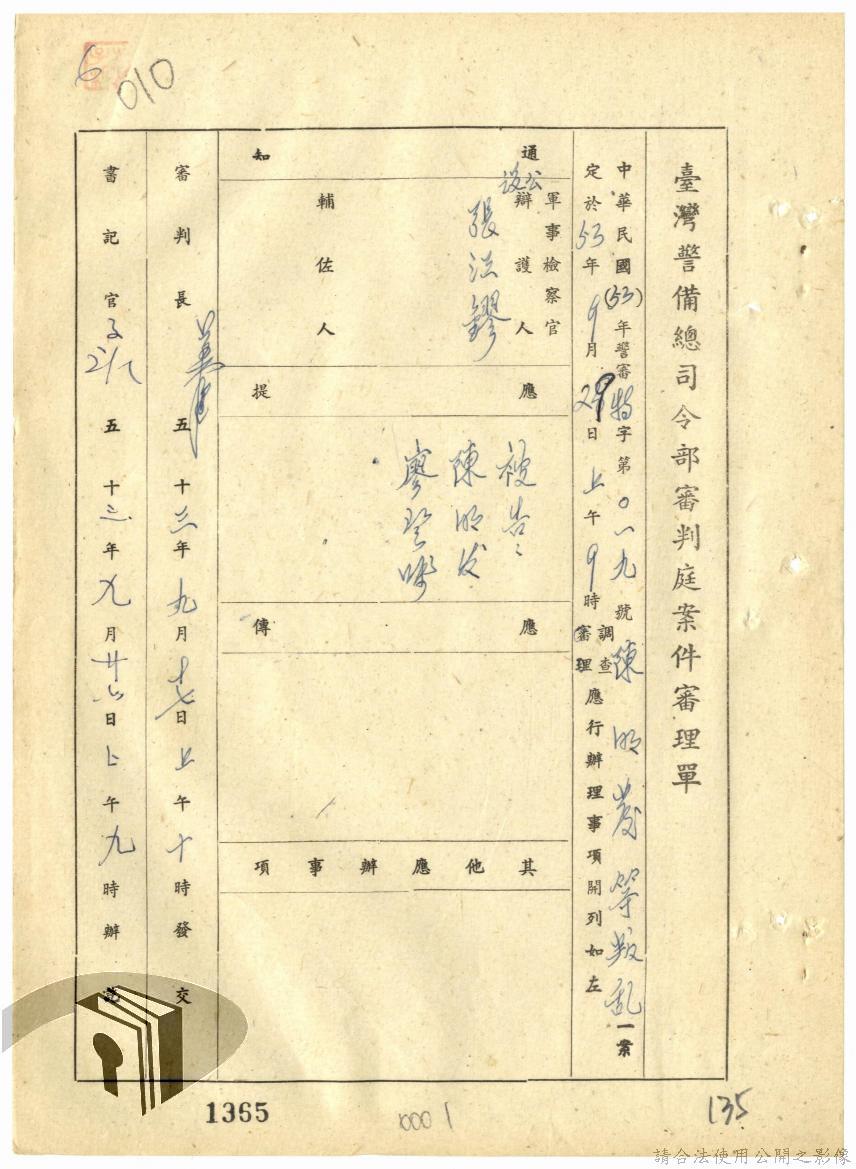 6
010
臺灣警備總司令部審判庭案件審理單
中華民國(53)年警審特字第〇一九號陳明發等叛乱一案
定於53年9月29日上午9時調查審理應行辦理事項開列如左
通知
軍事檢察官
公設辯護人
張
輔佐人
應提
被告:
陳明发
廖登
應傳
其他應辦事項
審判長
五十三年九月十七日上午十時發交
書記官
五十三年九月廿六日上午九時辦
1365
0001
135
請合法使用公開之影像